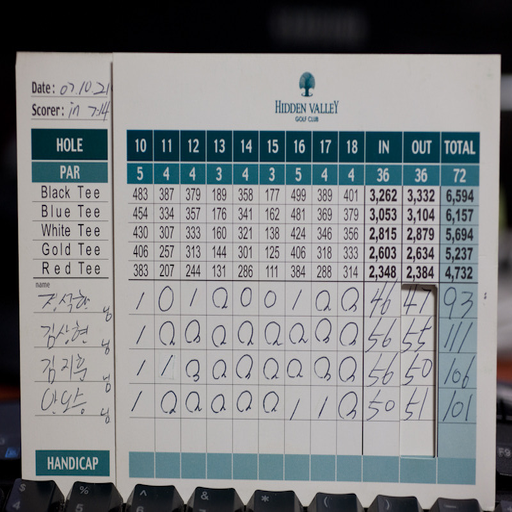 Date: 07.10.21
Scorer: in 7:14
HIDDEN VALLEY
GOLF CLUB
HOLE 10 11 12 13 14 15 16 17 18 IN OUT TOTAL
PAR 5 4 4 3 4 3 5 4 4 36 36 72
Black Tee 483 387 379 189 358 177 499 389 401 3,262 3,332 6,594
Blue Tee 454 334 357 176 341 162 481 369 379 3,053 3,104 6,157
White Tee 430 307 333 160 321 138 424 346 356 2,815 2,879 5,694
Gold Tee 406 257 313 144 301 125 406 318 333 2,603 2,634 5,237
Red Tee 383 207 244 131 286 111 384 288 314 2,348 2,384 4,732
name
1 0 1 2 0 0 1 2 2 46 47 93
김상현 님 1 2 2 2 2 2 2 2 2 56 55 111
김지훈 님 1 1 3 2 2 2 2 3 2 56 50 106
1 2 2 2 2 2 1 1 3 50 51 101
HANDICAP
$ 4
% 5
^ 6
& 7
* 8
( 9